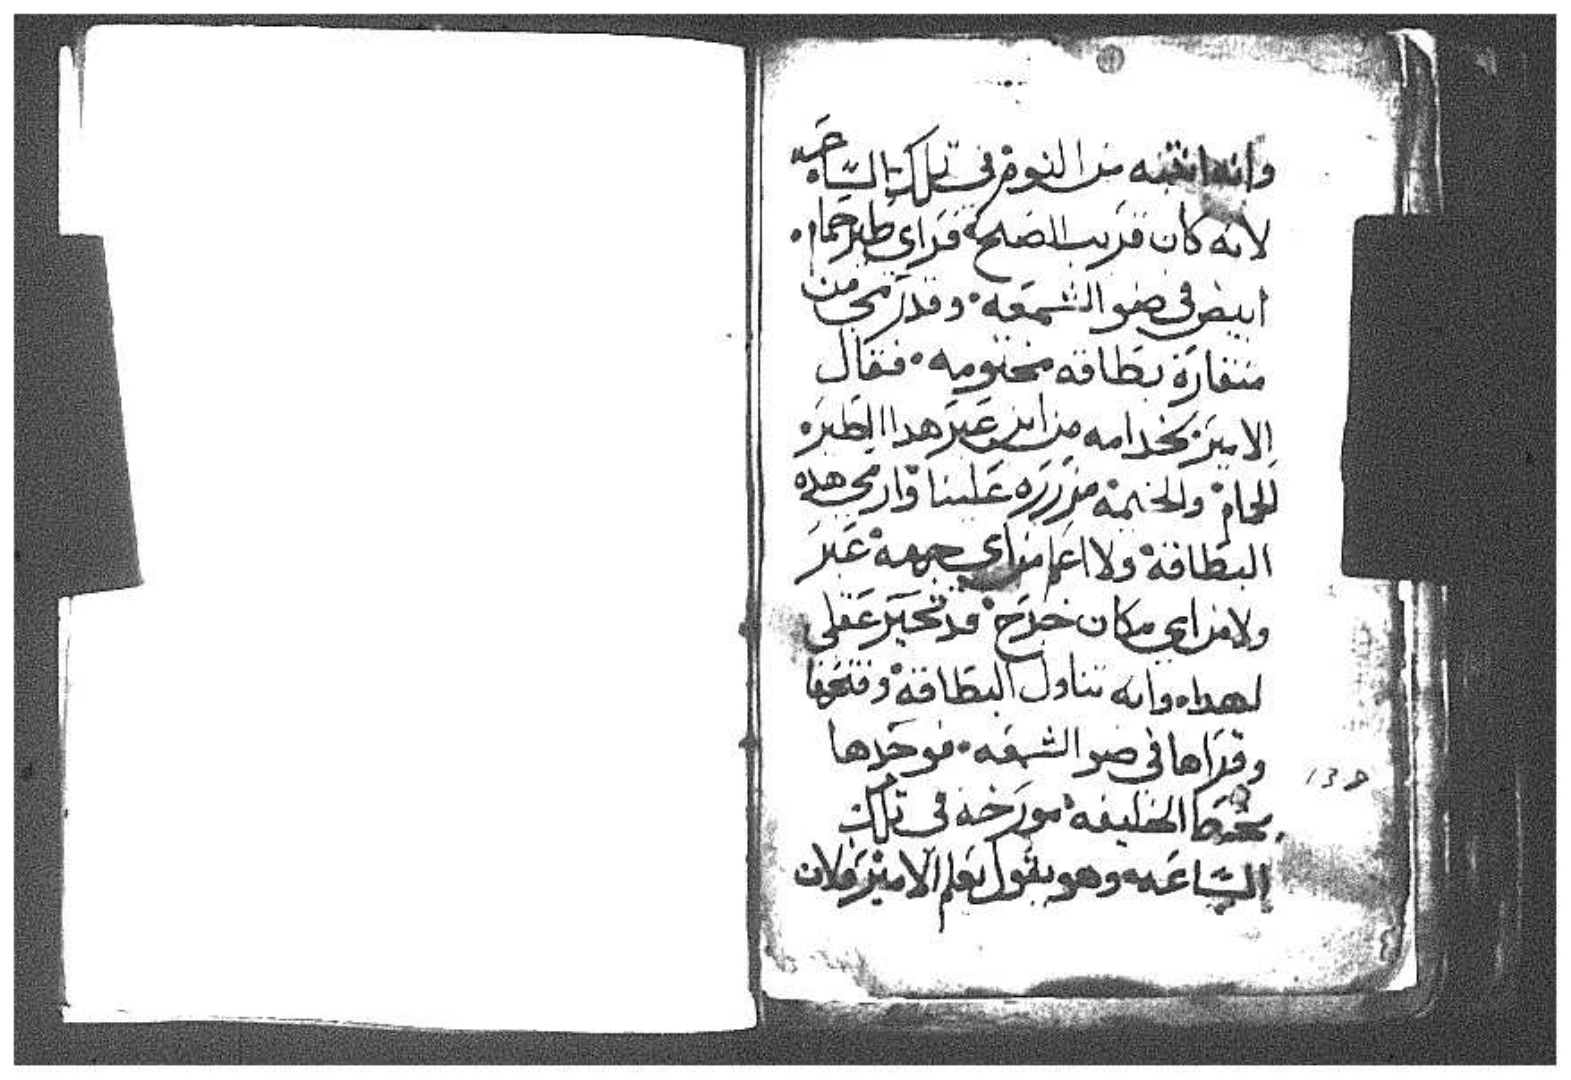 وانه انتبه من النوم في تلك الساعه
لانه كان قريب الصبح فراى طير حمام
ابيض في ضو الشمعه وقد رمى من
منقاره بطاقه مختومه فقال
الامير لخدامه من اين عبر هدا الطير
الحمام والخيمه مزرره علينا وارمى هده
البطاقة ولا اعلم من اي جهة عبر
ولا من اي مكان خرج قد تحير عقلي
لهدا وانه تناول البطاقة وفتحها
وقراها في ضو الشمعه فوجدها
بخط الخليفه مورخه في تلك
الساعه وهو يقول يعلم الامير فلان
139